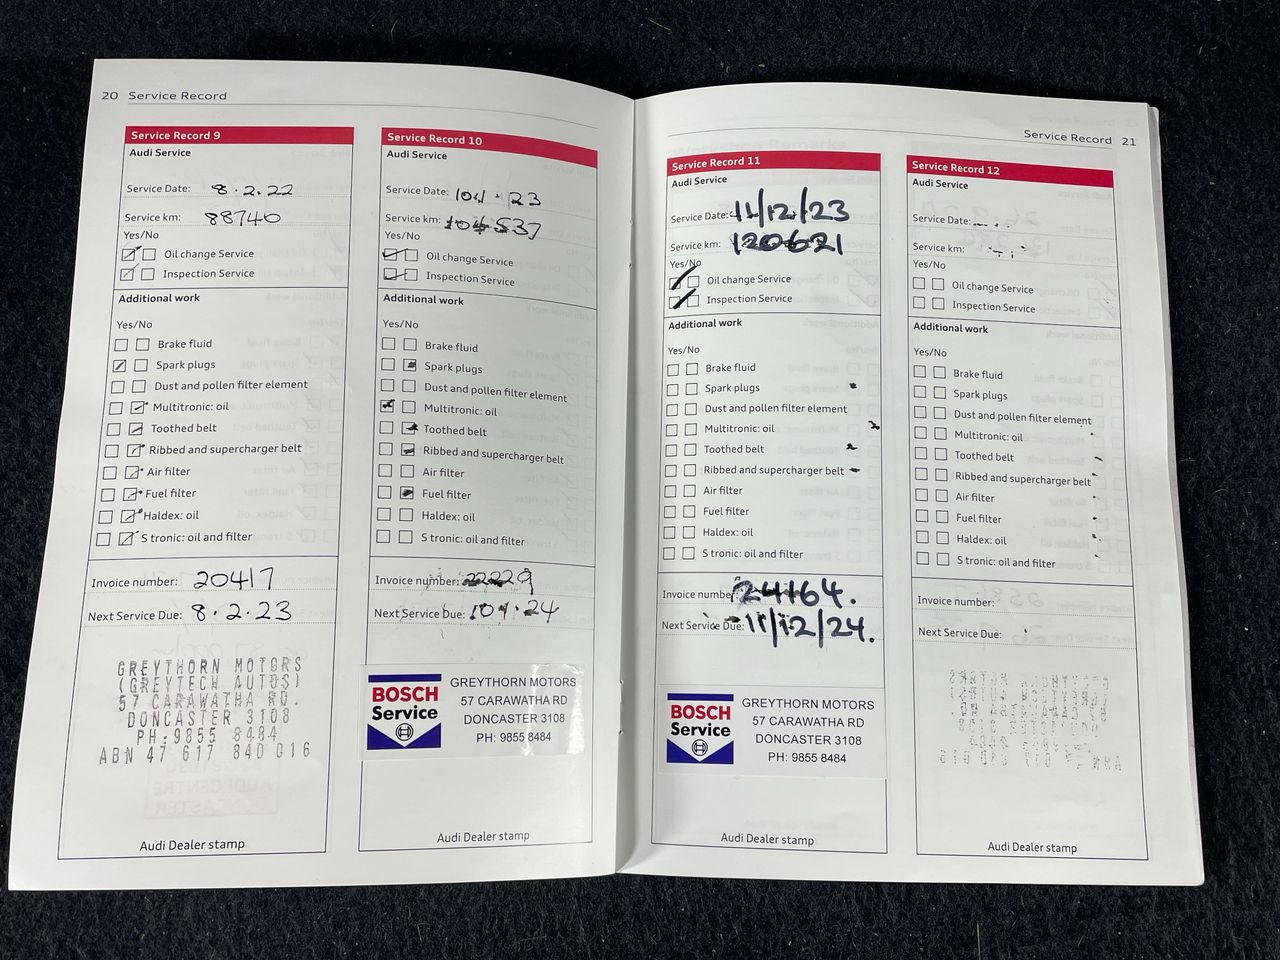 20 Service Record
Service Record 9
Audi Service
Service Date: 8.2.22
Service km: 88740
Yes/No
Oil change Service
Inspection Service
Additional work
Yes/No
Brake fluid
Spark plugs
Dust and pollen filter element
Multitronic: oil
Toothed belt
Ribbed and supercharger belt
Air filter
Fuel filter
Haldex: oil
S tronic: oil and filter
Invoice number: 20417
Next Service Due: 8.2.23
GREYTHORN MOTORS
(GREYTECH AUTOS)
57 CARAWATHA RD.
DONCASTER 3108
PH:9855 8484
ABN 47 617 840 016
Audi Dealer stamp
Service Record 10
Audi Service
Service Date:
Service km: 104537
Yes/No
Oil change Service
Inspection Service
Additional work
Yes/No
Brake fluid
Spark plugs
Dust and pollen filter element
Multitronic: oil
Toothed belt
Ribbed and supercharger belt
Air filter
Fuel filter
Haldex: oil
S tronic: oil and filter
Invoice number: 22229
Next Service Due:
BOSCH
Service
GREYTHORN MOTORS
57 CARAWATHA RD
DONCASTER 3108
PH: 9855 8484
Audi Dealer stamp
Service Record 21
Service Record 11
Audi Service
Service Date: 11/12/23
Service km: 120621
Yes/No
Oil change Service
Inspection Service
Additional work
Yes/No
Brake fluid
Spark plugs
Dust and pollen filter element
Multitronic: oil
Toothed belt
Ribbed and supercharger belt
Air filter
Fuel filter
Haldex: oil
S tronic: oil and filter
Invoice number: 24164.
Next Service Due: 11/12/24.
BOSCH
Service
GREYTHORN MOTORS
57 CARAWATHA RD
DONCASTER 3108
PH: 9855 8484
Audi Dealer stamp
Service Record 12
Audi Service
Service Date:
Service km:
Yes/No
Oil change Service
Inspection Service
Additional work
Yes/No
Brake fluid
Spark plugs
Dust and pollen filter element
Multitronic: oil
Toothed belt
Ribbed and supercharger belt
Air filter
Fuel filter
Haldex: oil
S tronic: oil and filter
Invoice number:
Next Service Due:
Audi Dealer stamp